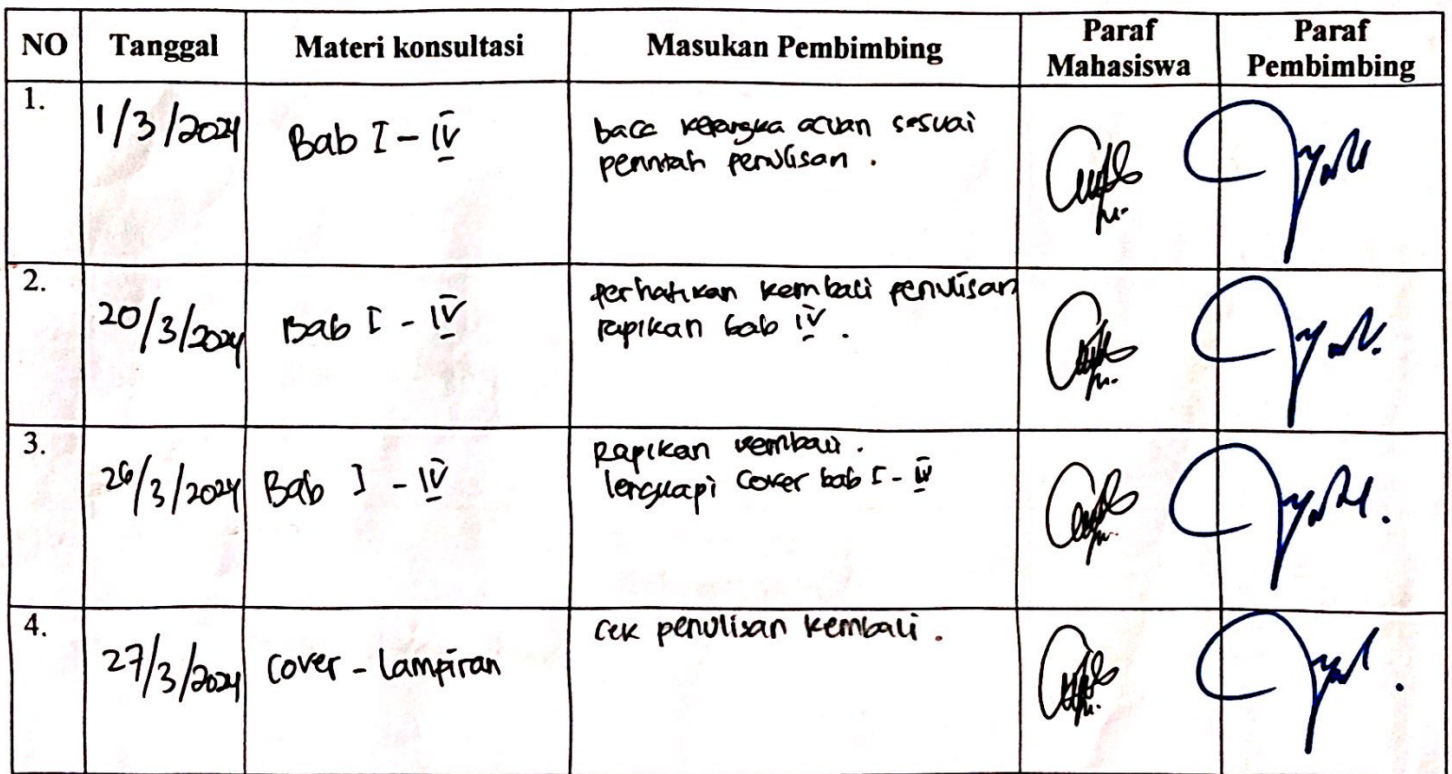 NO Tanggal Materi konsultasi Masukan Pembimbing Paraf Mahasiswa Paraf Pembimbing
1. 1/3/2024 Bab I - IV baca kerangka acuan sesuai
perintah penulisan.
2. 20/3/2024 Bab I - IV perhatikan kembali penulisan
rapikan bab IV.
3. 26/3/2024 Bab I - IV Rapikan kembali.
lengkapi cover bab I - IV
4. 27/3/2024 cover - Lampiran cek penulisan kembali.